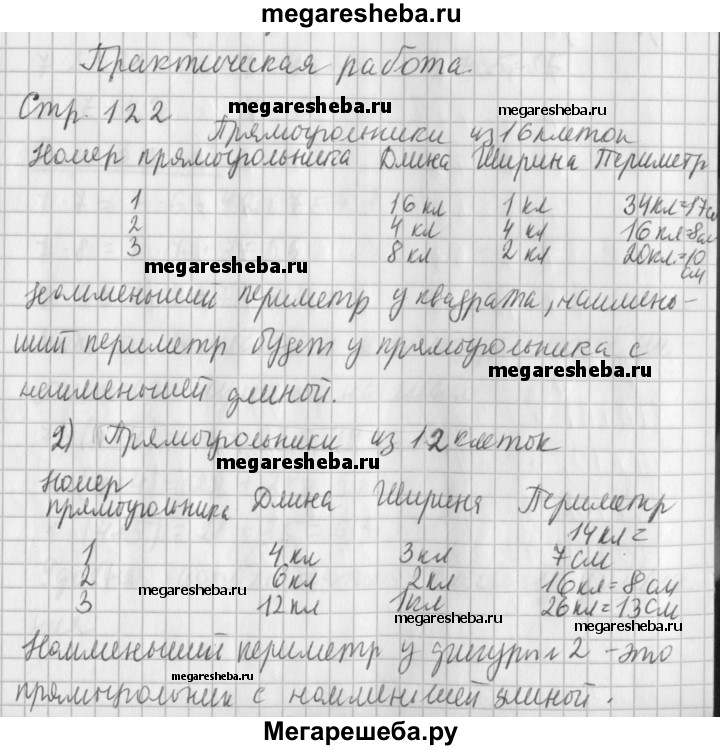 megaresheba.ru
Практическая работа.
Стр. 122 megaresheba.ru megaresheba.ru
Прямоугольники из 16 клеток
Номер прямоугольника Длина Ширина Периметр
1 16 кл 1 кл 34кл=17см
2 4 кл 4 кл 16 кл=8см
3 8 кл 2 кл 20кл=10
см
megaresheba.ru
Наименьший периметр у квадрата, наимень-
ший периметр будет у прямоугольника с
megaresheba.ru
наименьшей длиной.
2) Прямоугольники из 12 клеток
megaresheba.ru
Номер
прямоугольника Длина Ширина Периметр
14кл=
1 4 кл 3кл 7см
2 6кл 2кл 16кл=8см
3 12кл 1кл 26кл=13см
megaresheba.ru
megaresheba.ru
megaresheba.ru
Наименьший периметр у фигуры 2 - это
megaresheba.ru
прямоугольник с наименьшей длиной.
Мегарешеба.ру